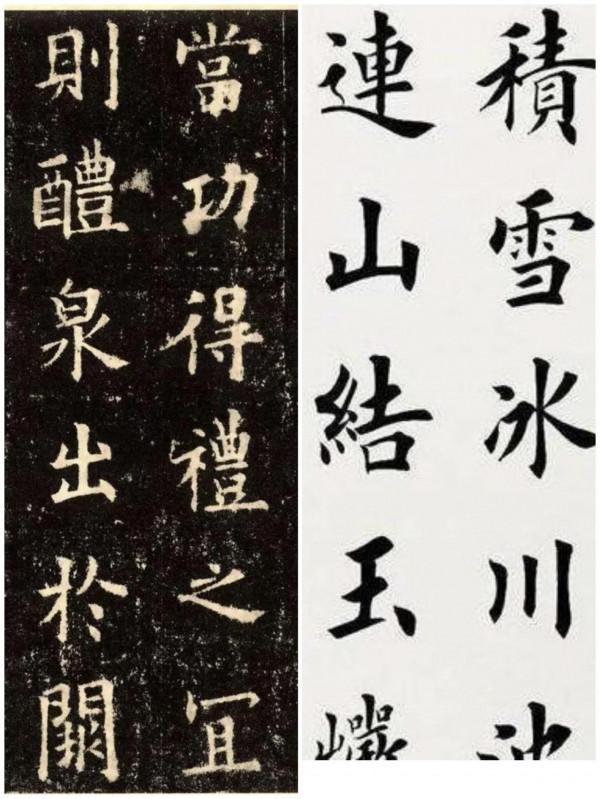 當功得禮之冝
則醴泉出於闕
積雪冰川
連山結玉